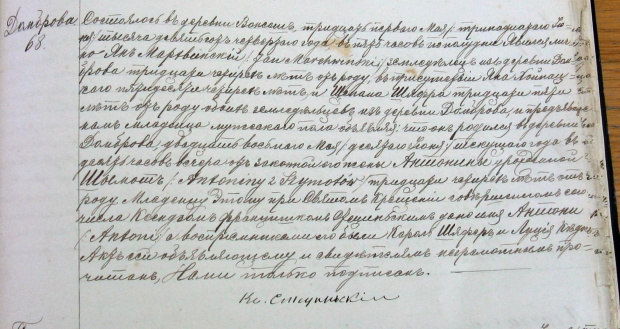 Домброва
68.
Состоялось въ деревни Вонсошъ, тридцать перваго Мая / тринадцатаго Iю-
ня / тысяча девятьсотъ четвертаго года въ пять часовъ по полудни Явился лично
Янъ Марковскiй / Jan / земледѣлецъ изъ деревни Дом-
брова тридцати четырехъ лѣтъ отъ роду, въ присутствiи Яна
пятидесяти четырехъ лѣтъ и Шляфра тридцати пяти
лѣтъ отъ роду обоихъ земледѣльцевъ изъ деревни Домброва, и предъявилъ
намъ младенца мужескаго пола объявляя: что онъ родился въ деревни
Домброва двадцать восьмаго Мая / десятаго Iюня / текущаго года въ
десять часовъ вечера отъ законной его жены Антонины урожденной
Шымотъ / Antoniny z Szymotów / тридцати четырехъ лѣтъ отъ
роду Младенцу Этому при Святомъ Крещенiи совершенномъ сего
числа Ксендзомъ Францишкомъ дано имя Антонi
/ Antoni / а воспрiемниками его были Кароль Шляферъ и Луцiя
Актъ сей объявляющему и свидѣтелямъ неграмотнымъ про-
читанъ, Нами только подписанъ.
Кс.